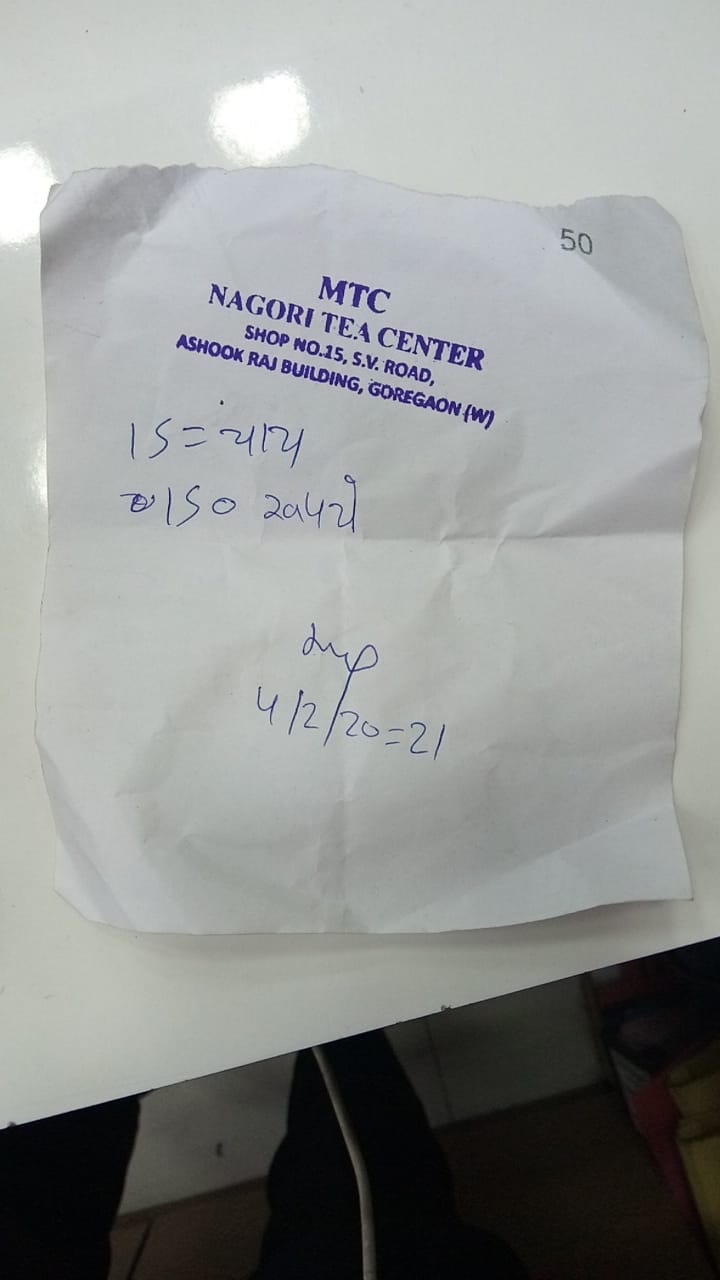 50
MTC
NAGORI TEA CENTER
SHOP NO.15, S.V. ROAD,
ASHOOK RAJ BUILDING, GOREGAON (W)
15=चाय
150
4/2/20=21